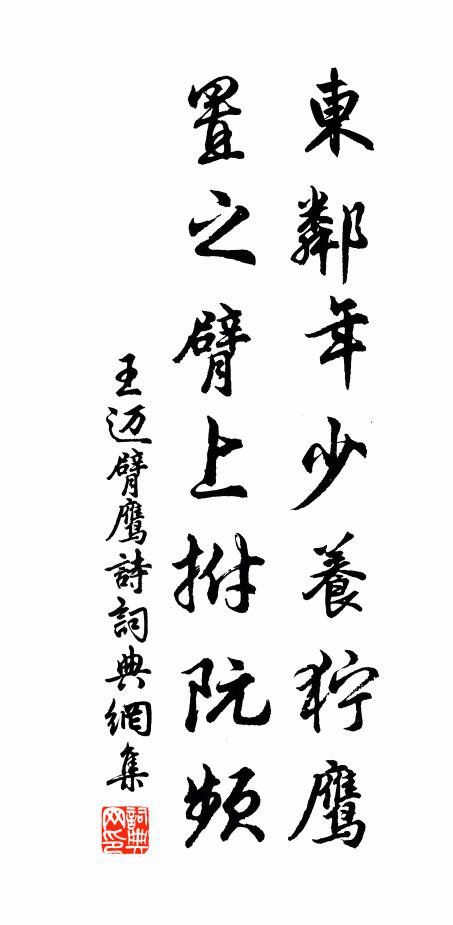 東鄰年少養狞鷹
置之臂上拊阮頻
王迈臂鹰詩詞典網集
詞典网印